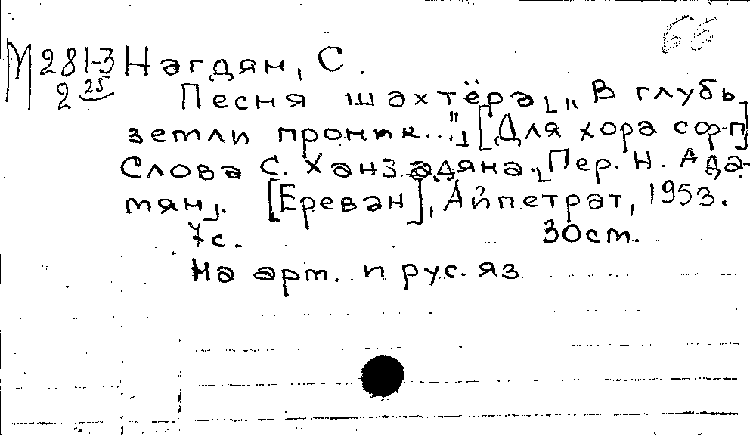 66
М 281-3 Нагдян, С.
2 25 Песня шахтёра, „В глубь
земли проник..."] [Для хора с ф-п]
Слова С. Ханзадяна. Пер. Н. Ада-
мян]. [Ереван], Айпетрат, 1953.
7с. 30 cm.
На арм. и рус. яз